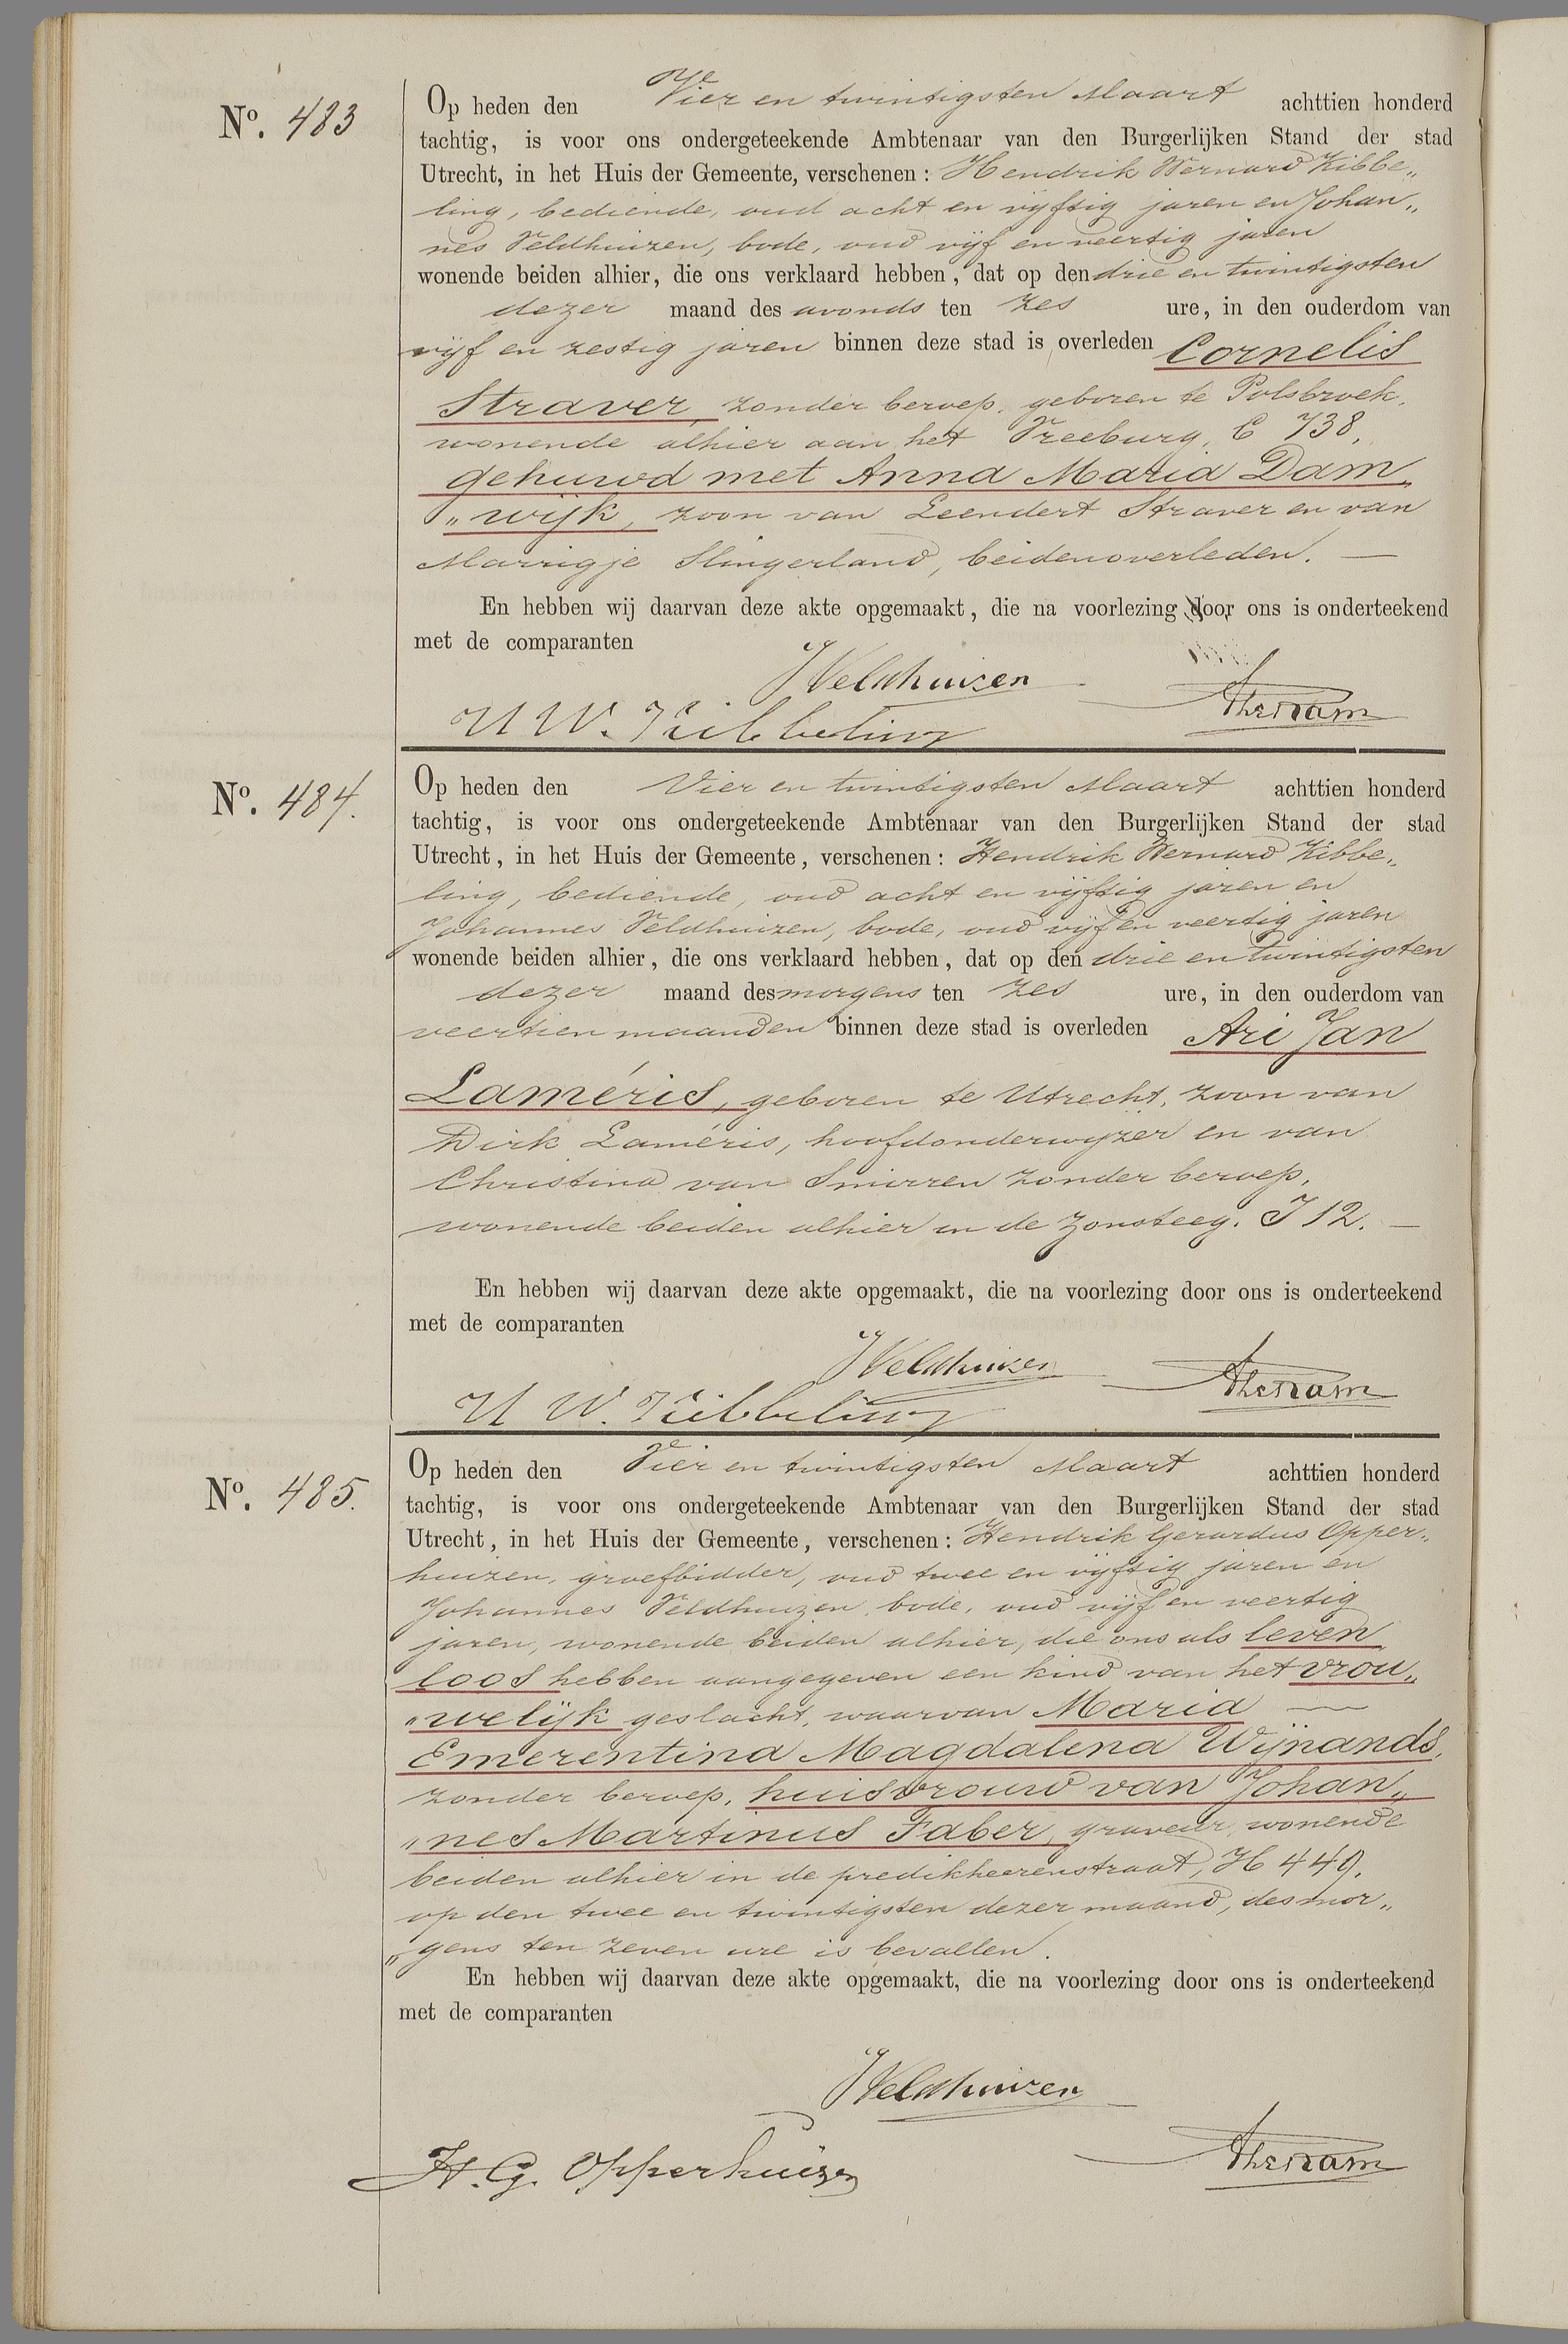 No. 483
Op heden den Vier en twintigsten Maart achttien honderd
tachtig, is voor ons ondergeteekende Ambtenaar van den Burgerlijken Stand der stad
Utrecht, in het Huis der Gemeente, verschenen: Hendrik Wernard Kibbe„
ling, bediende, oud acht en vijftig jaren en Johan„
nes Veldhuizen, bode, oud vijf en veertig jaren
wonende beiden alhier, die ons verklaard hebben, dat op den drie en twintigsten
dezer maand des avonds ten zes ure, in den ouderdom van
vijf en zestig jaren binnen deze stad is overleden Cornelis
Straver, zonder beroep, geboren te Polsbroek,
wonende alhier aan het Vreeburg, C 738,
gehuwd met Anna Maria Dam„
„wijk, zoon van Leendert Straver en van
Marrigje Slingerland, beiden overleden. —
En hebben wij daarvan deze akte opgemaakt, die na voorlezing door ons is onderteekend
met de comparanten
JVeldhuizen
H W. Kibbeling
No. 484.
Op heden den Vier en twintigsten Maart achttien honderd
tachtig, is voor ons ondergeteekende Ambtenaar van den Burgerlijken Stand der stad
Utrecht, in het Huis der Gemeente, verschenen: Hendrik Wernard Kibbe„
ling, bediende, oud acht en vijftig jaren en
Johannes Veldhuizen, bode, oud vijf en veertig jaren
wonende beiden alhier, die ons verklaard hebben, dat op den drie en twintigsten
dezer maand des morgens ten zes ure, in den ouderdom van
veertien maanden binnen deze stad is overleden Ari Jan
Laméris, geboren te Utrecht, zoon van
Dirk Laméris, hoofdonderwijzer en van
Christina van Smirren zonder beroep,
wonende beiden alhier in de Zonsteeg. I 12. —
En hebben wij daarvan deze akte opgemaakt, die na voorlezing door ons is onderteekend
met de comparanten
JVeldhuizen
H W. Kibbeling
No. 485.
Op heden den Vier en twintigsten Maart achttien honderd
tachtig, is voor ons ondergeteekende Ambtenaar van den Burgerlijken Stand der stad
Utrecht, in het Huis der Gemeente, verschenen: Hendrik Gerardus Opper„
huizen, groefbidder, oud twee en vijftig jaren en
Johannes Veldhuizen, bode, oud vijf en veertig
jaren, wonende beiden alhier, die ons als leven
loos hebben aangegeven een kind van het vrou„
„welijk geslacht, waarvan Maria —
Emerentina Magdalena Wijnands,
zonder beroep, huisvrouw van Johan„
„nes Martinus Faber, graveur, wonende
beiden alhier in de predikheerenstraat, H 449,
op den twee en twintigsten dezer maand, des mor„
„gens ten zeven ure is bevallen.
En hebben wij daarvan deze akte opgemaakt, die na voorlezing door ons is onderteekend
met de comparanten
JVeldhuizen
H. G. Opperhuizen